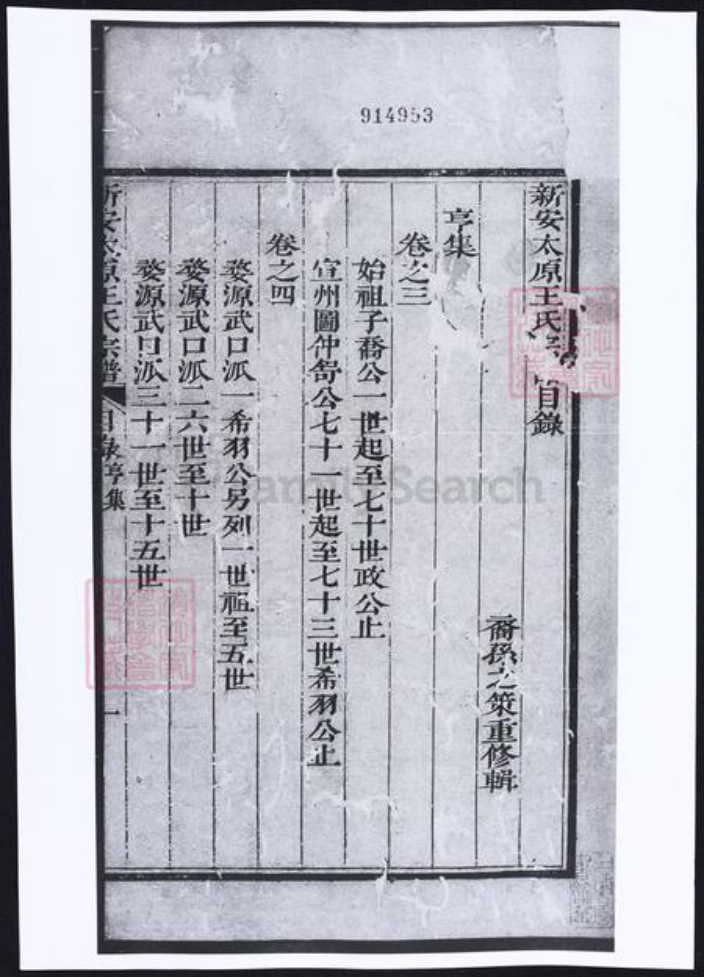 914953
新安太原王氏宗 目錄
裔孫之策重修輯
亨集
卷之三
始祖子喬公一世起至七十世政公止
宣州圖仲舒公七十一世起至七十三世希羽公止
卷之四
婺源武口派一希羽公另列一世祖至五世
婺源武口派二六世至十世
婺源武口派三十一世至十五世
新安太原王氏宗譜 目錄亨集 一
FamilySearch